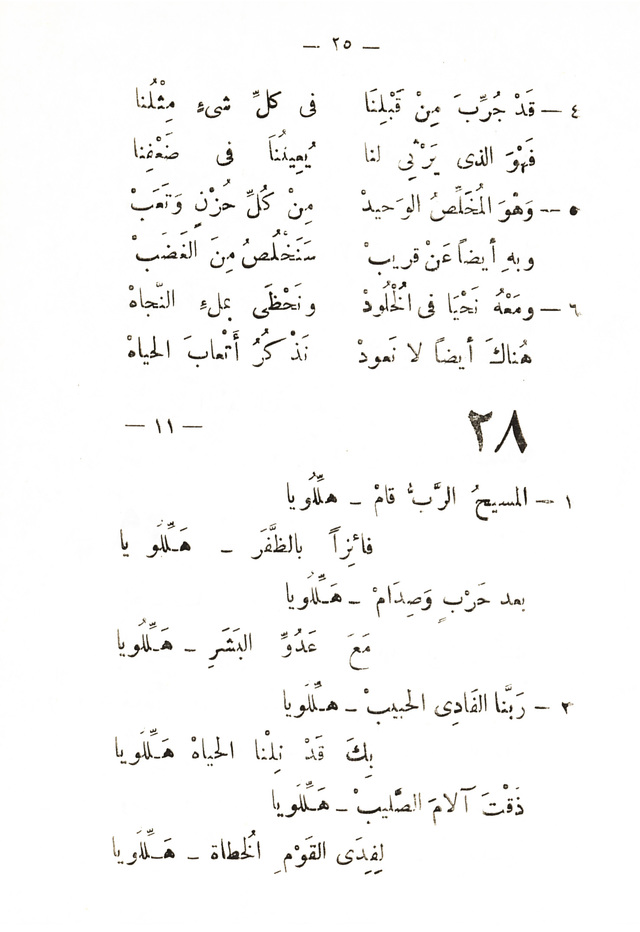 — ٢٥ —
٤ — قَدْ جُرِّبَ مِنْ قَبْلِنَا فى كلِّ شىءٍ مِثْلُنا
فَهْوَ الذى يَرْثِى لنا يُعِينُنَا فى ضَعْفِنا
٥ — وَهْوَ المُخَلِّصُ الوَحيدْ مِنْ كُلِّ حُزْنٍ وَتَعَبْ
وبهِ أيضاً عَنْ قريبْ سَنَخْلُصُ مِنَ الغَضَبْ
٦ — ومَعْهُ نَحْيَا فى اُلْخُلودْ ونَحْظَى بملءِ النَّجاهْ
هُناكَ أيضاً لا نَعودْ نَذْكرُ أَتْعابَ الحياهْ
٢٨ — ١١ —
١ — المسيحُ الرَّبُّ قامْ — هلِّلُويا
فائِزاً بالظَّفَرَ — هَلِّلُويا
بعد حَرْبٍ وَصِدَامْ — هَلِّلُويا
مَعَ عَدُوِّ البَشَرِ — هَلِّلُويا
٢ — رَبَّنا الفَادِى الحبيبْ — هلِّلُويا
بِكَ قَدْ نِلْنا الحياهْ هَلِّلُويا
ذَقْتَ آلامَ الصَّليبْ — هَلِّلُويا
لِفِدَى القَوْمِ اُلخطاة — هَلِّلُويا